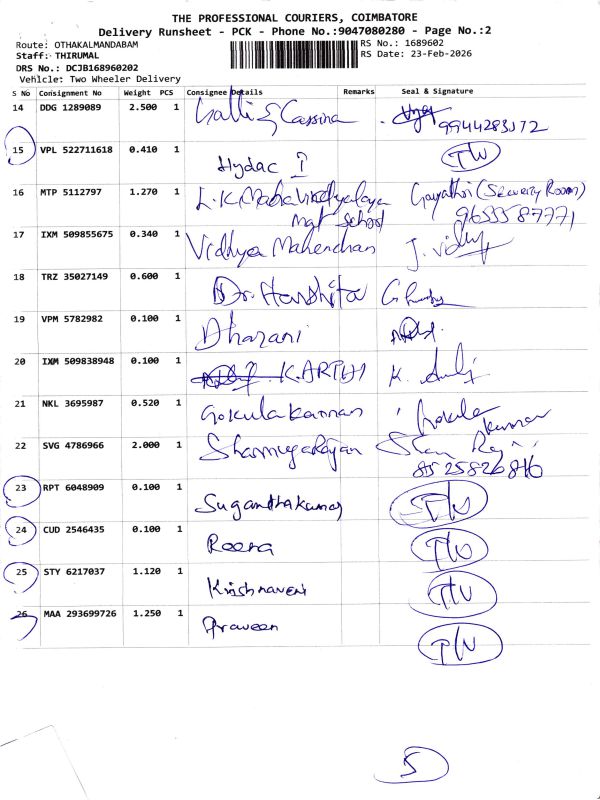 THE PROFESSIONAL COURIERS, COIMBATORE
Delivery Runsheet - PCK - Phone No.:9047080280 - Page No.:2
Route: OTHAKALMANDABAM RS No.: 1689602
Staff: THIRUMAL RS Date: 23-Feb-2026
DRS No.: DCJB168960202
Vehicle: Two Wheeler Delivery
S No Consignment No Weight PCS Consignee Details Remarks Seal & Signature
14 DDG 1289089 2.500 1
15 VPL 522711618 0.410 1 Hydac I
16 MTP 5112797 1.270 1 L.K. Mahavidhyalaya Gayathri (Security Room)
Mgt School
17 IXM 509855675 0.340 1 Vidhya Mahendran J. Vidhy
18 TRZ 35027149 0.600 1 Dr. Harshita
19 VPM 5782982 0.100 1 Dharani
20 IXM 509838948 0.100 1 K.ARTHI K.
21 NKL 3695987 0.520 1 Gokulakannan Gokula
kannan
22 SVG 4786966 2.000 1 Shanmugarajan
8525826816
23 RPT 6048909 0.100 1 Suganthakumar
24 CUD 2546435 0.100 1 Reena
25 STY 6217037 1.120 1 Krishnaveni
26 MAA 293699726 1.250 1 Praveen
5